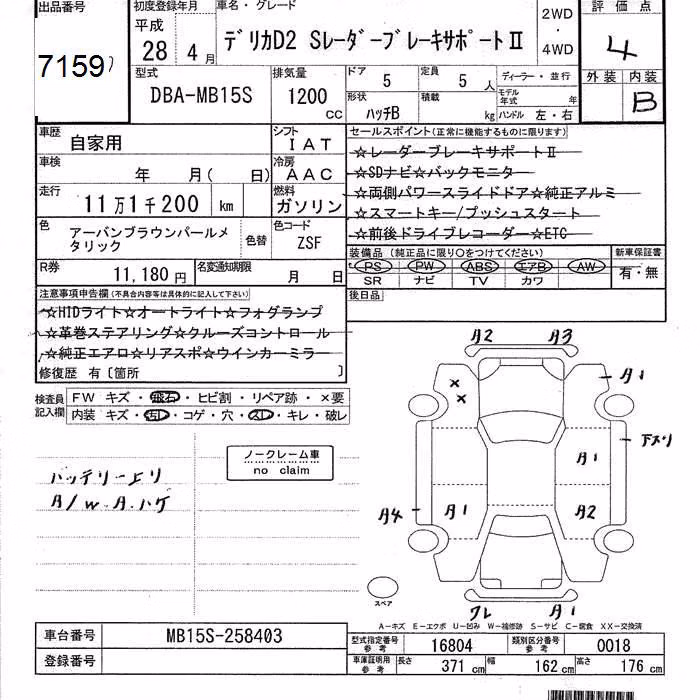 出品番号 初度登録年月 車名・グレード 2WD 評価点
7159
平成 28年 4月 デリカD2 SレーダーブレーキサポートⅡ ・ 4WD 4
型式 排気量 ドア 5 定員 5人 ディーラー・並行 外装 内装
DBA-MB15S 1200 cc 形状 ハッチB 積載 kg モデル年式 年 ハンドル 左・右 B
車歴 自家用 シフト IAT セールスポイント(正常に機能するものに限ります)
☆レーダーブレーキサポートⅡ
車検 年 月( 日) 冷房 AAC ☆SDナビ☆バックモニタ
走行 11万1千200 km 燃料 ガソリン ☆両側パワースライドドア☆純正アルミ
☆スマートキー/プッシュスタート
色 アーバンブラウンパールメタリック 色替 色コード ZSF ☆前後ドライブレコーダー☆ETC
装備品(純正品に限り〇をつけてください) 新車保証書
R券 11,180円 名変通知期限 月 日 PS PW ABS エアB AW 有・無
SR ナビ TV カワ
注意事項申告欄(不具合内容等は具体的に記入して下さい) 後日品
☆HIDライト☆オートライト☆フォグランプ
☆革巻ステアリング☆クルーズコントロール
☆純正エアロ☆リアスポ☆ウインカーミラー
修復歴 有〔箇所 〕
検査員記入欄 FW キズ・飛石・ヒビ割・リペア跡・×要
内装 キズ・汚レ・コゲ・穴・スレ・キレ・破レ
ノークレーム車
no claim
バッテリー上リ
A/W.A.ハゲ
A2 A3
× ×
A1
下スリ
A1
A4 A1 A2
ワレ A1
スペア
A-キズ E-エクボ U-凹み W-補修跡 S-サビ C-腐食 XX-交換済
車台番号 MB15S-258403 型式指定番号 参考 16804 類別区分番号 参考 0018
登録番号 車庫証明用 参考 長さ 371 cm 幅 162 cm 高さ 176 cm